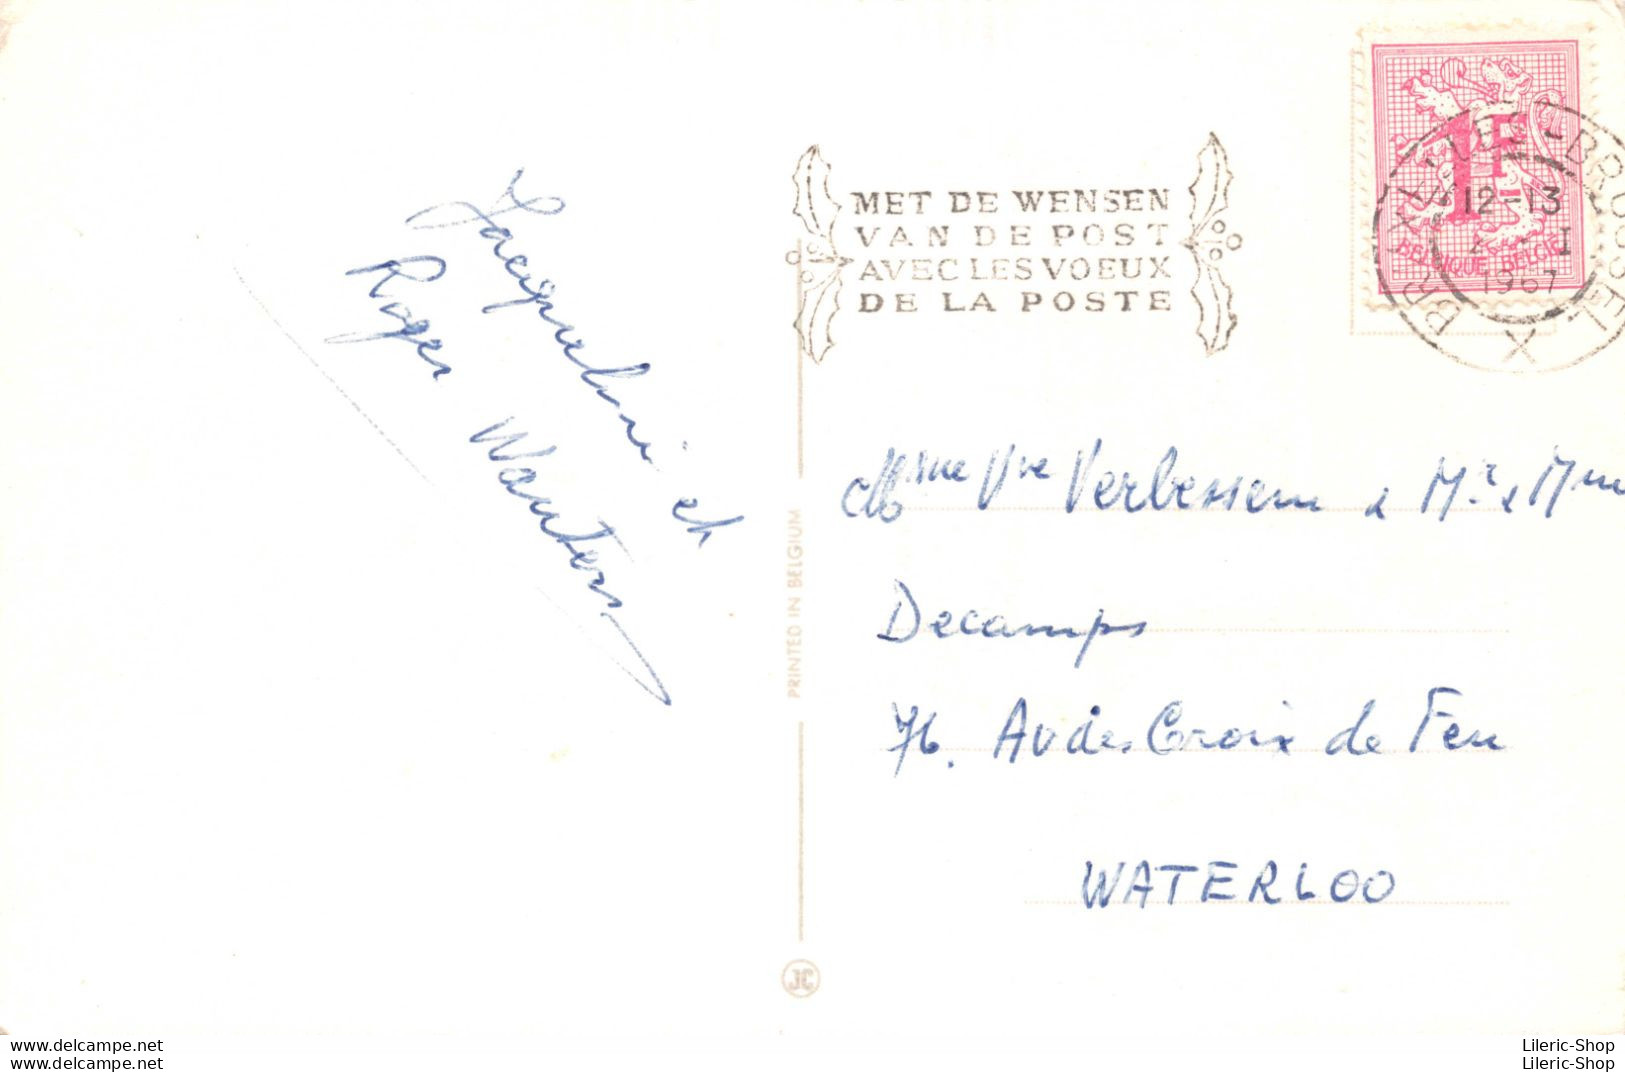 Jacqueline et
Roger Wauters
PRINTED IN BELGIUM
JC
MET DE WENSEN
VAN DE POST
AVEC LES VOEUX
DE LA POSTE
1F
BELGIQUE-BELGIË
BRUXELLES-BRUSSEL
12-13
I
1967
X
Mme Vve Verbessem & Mr & Mme
Decamps
76. Av des Croix de Feu
WATERLOO
delcampe.net
delcampe.net
Lileric-Shop
Lileric-Shop